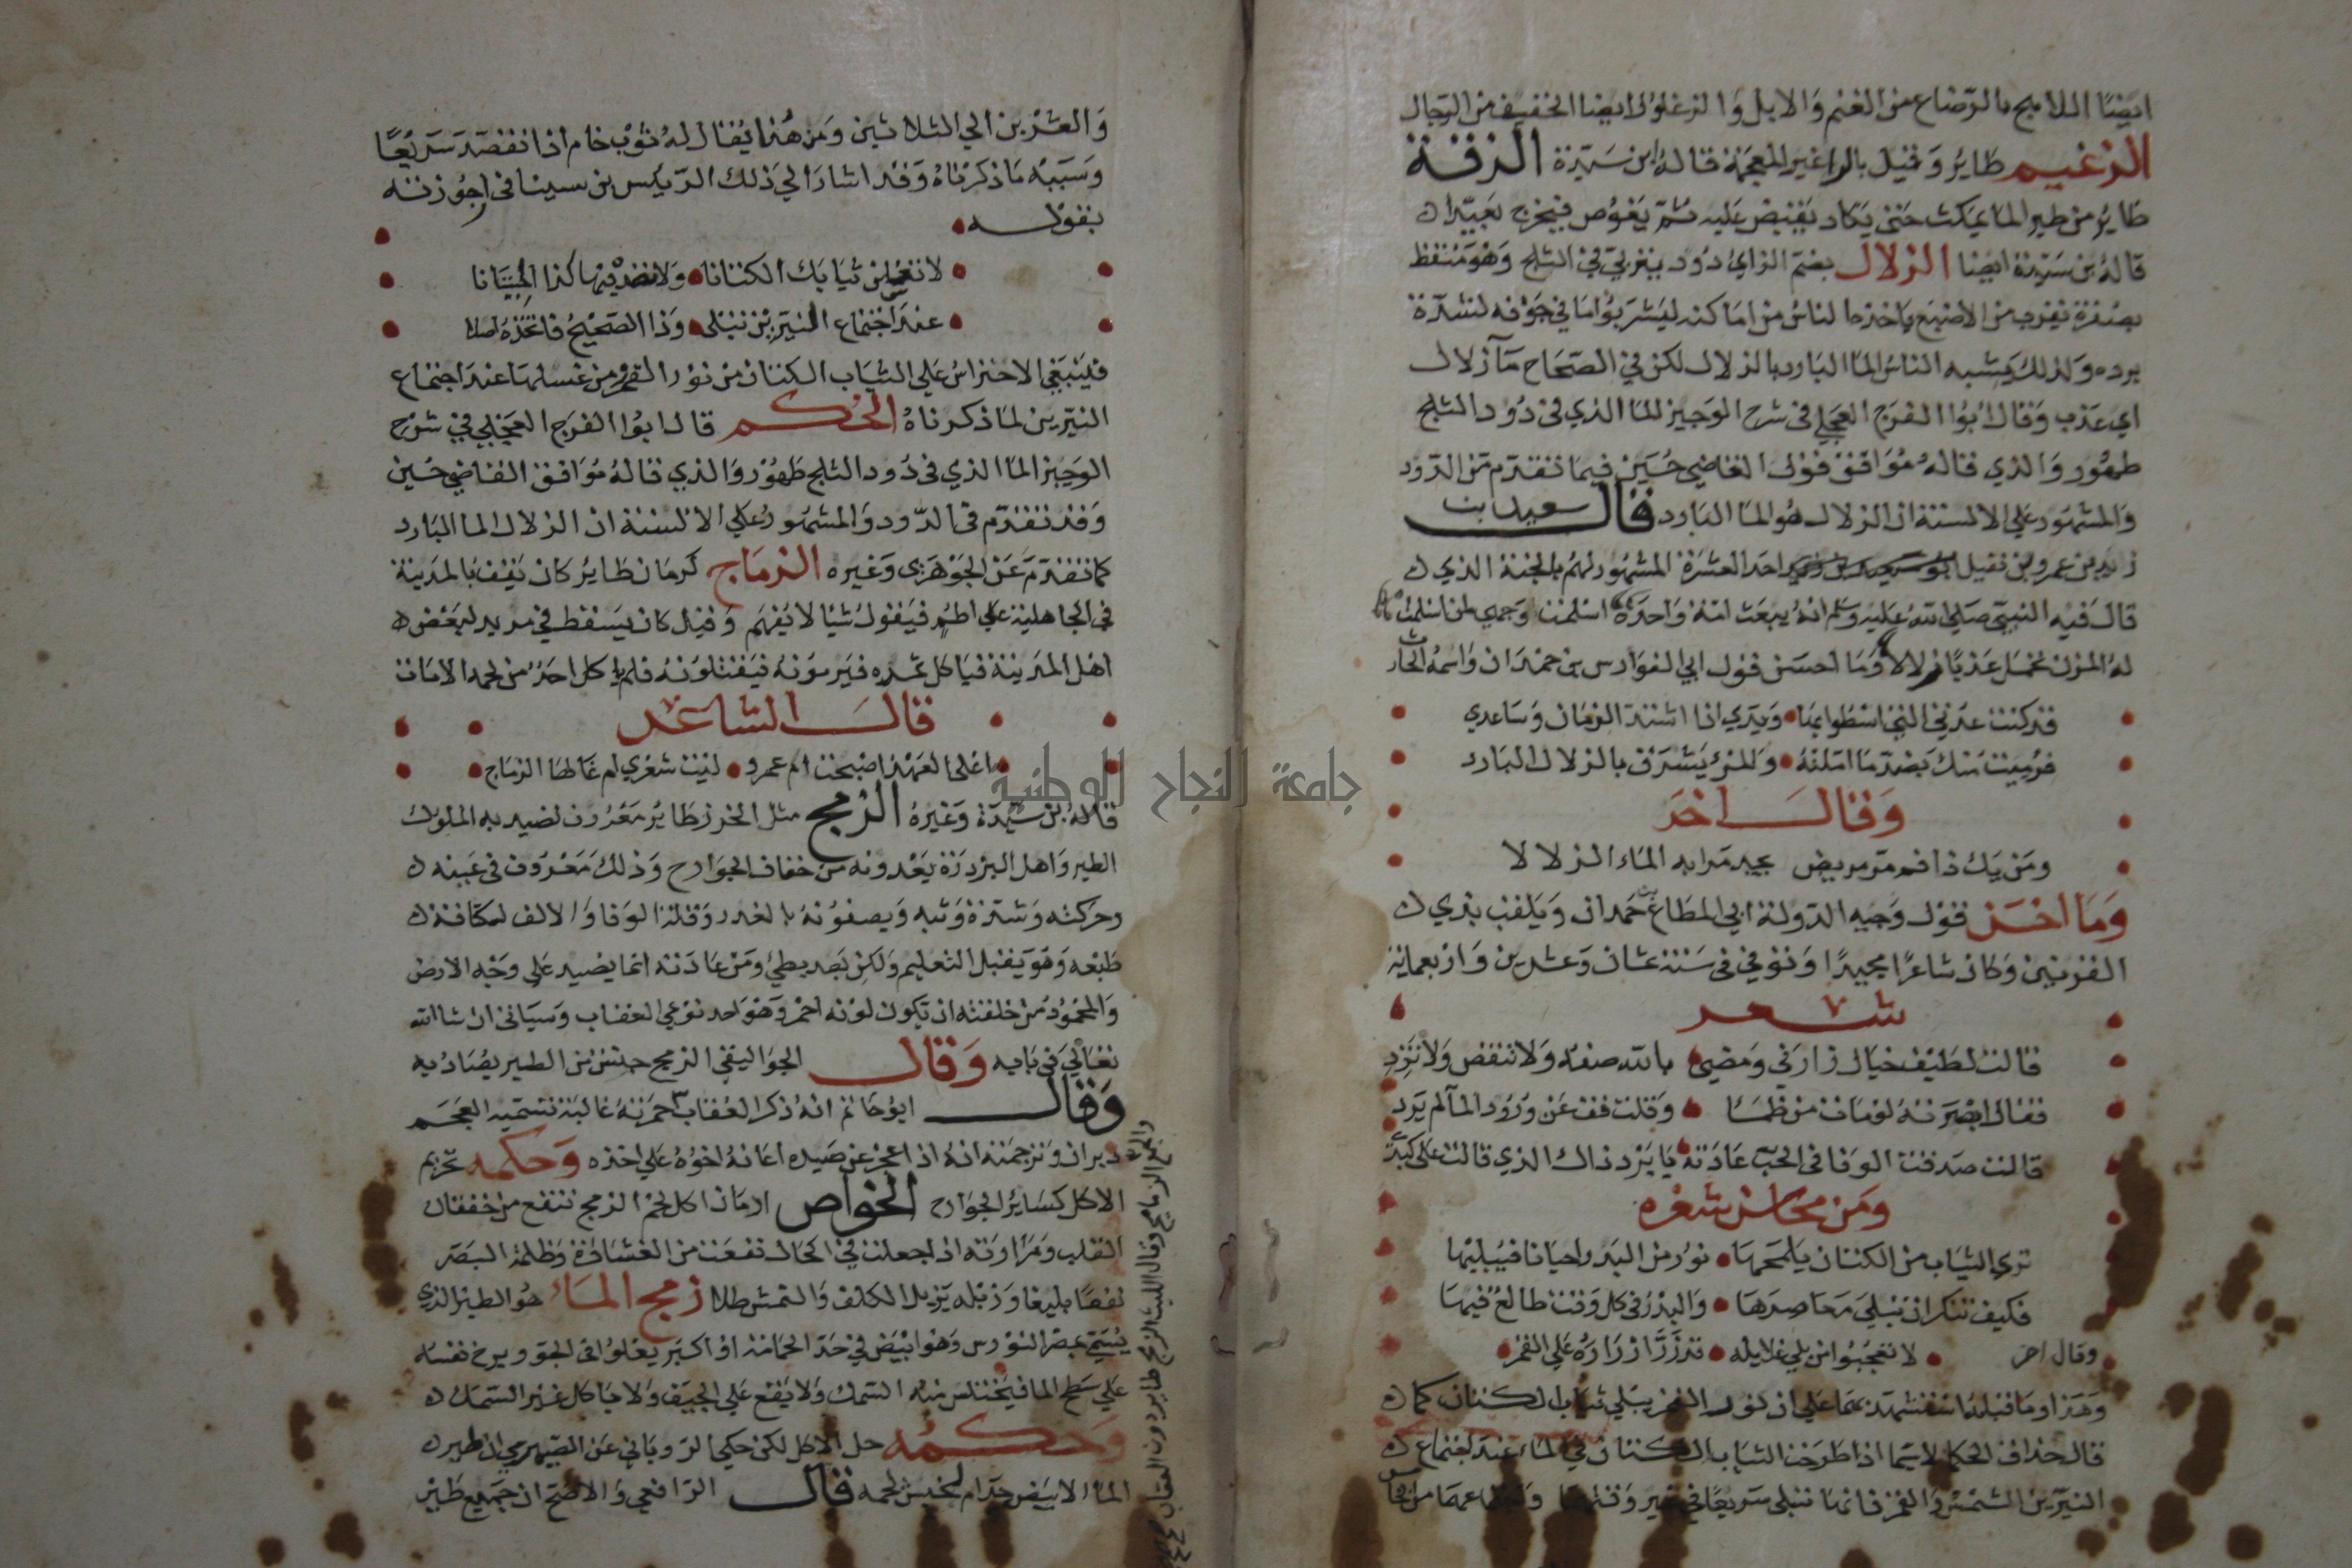 ايضا اللابج بالرضاع من الغنم والابل والزغلول ايضا الخفيف من الرجال
الزغيم طاير وقيل بالرا غير المعجمة قاله ابن سيدة الزقة
طاير من طير الما يمكث حتى يكاد يقبض عليه ثم يغوص فيخرج بعيدا
قاله بن سيدة ايضا الزلال بضم الزاي دود يتربي في الثلج وهو منقط
بصفرة يقرب من الاصبع ياخذه الناس من اماكنه ليشربوا ما في جوفه لشدة
برده ولذلك يشبه الناس الما البارد بالزلال لكن في الصحاح مآ زلال
اي عذب وقال ابوا الفرج العجلي في شرح الوجيز الما الذي في دود الثلج
طهور والذي قاله موافق قول القاضي حسين فيما تقدم من الدود
والمشهور على الالسنة ان الزلال هو الما البارد قال سعيد بن
زيد بن عمرو بن نفيل احد العشرة المشهود لهم بالجنة الذي
قال فيه النبي صلى الله عليه وسلم انه يبعث امة واحدة اسلمت وجهي لمن اسلمت
له المزن تحمل عذبا زلالا وما احسن قول ابي الفوارس بن حمدان واسمه الحارث
قد كنت عدتي التي اسطوا بها ويدي اذا اشتد الزمان وساعدي
فرميت منك بضد ما املته والمرء يشرق بالزلال البارد
وقال اخر
ومن يك ذا فم مر مريض يجد مرا به الماء الزلالا
وما احسن قول وجيه الدولة ابي المطاع بن حمدان ويلقب بذي
القرنين وكان شاعرا مجيدا وتوفي في سنة ثمان وعشرين واربعماية
شعر
قالت لطيف خيال زارني ومضى بالله صفه ولا تنقص ولا تزد
فقال ابصرته لو مات من ظما وقلت قف عن ورود المآ لم يرد
قالت صدقت الوفا في الحب عادته يا برد ذاك الذي قالت على كبدي
ومن محاسن شعره
ترى الثياب من الكتان يلمحها نور من البدر احيانا فيبليها
فكيف تنكر ان تبلى معاصرها والبدر في كل وقت طالع فيها
وقال اخر لا تعجبوا من بلي غلايله قد زر ازراره على القمر
وهذا وما قبله استشهد بهما على ان نور القمر يبلي ثياب الكتان كما
قال حذاق الحكما لا سيما اذا طرحت الثياب الكتان في الماء عند اجتماع
النيرين الشمس والقمر فانها تبلى سريعا في غير وقتها
والعشرين الى الثلاثين ومن هذا يقال له ثوب خام اذا تفصد سريعا
وسببه ما ذكرناه وقد اشار الى ذلك الرئيس بن سينا في ارجوزته
بقوله
لا تغسلن ثيابك الكتانا ولا تصد فيها كذا الحيتانا
عند اجتماع النيرين تبلى وذا الصحيح فاتخذه اصلا
فينبغي الاحتراس على الثياب الكتان من نور القمر ومن غسلها عند اجتماع
النيرين لما ذكرناه الحكم قال ابوا الفرج العجلي في شرح
الوجيز الما الذي في دود الثلج طهور والذي قاله موافق القاضي حسين
وقد تقدم في الدود والمشهور على الالسنة ان الزلال الما البارد
كما تقدم عن الجوهري وغيره الزماج كرمان طاير كان يقف بالمدينة
في الجاهلية على اطم فيقول شيا لا يفهم وقيل كان يسقط في مربد لبعض
اهل المدينة فياكل تمره فيرمونه فيقتلونه فلم ياكل احد من لحمه الا مات
قال الشاعر
اعلى العهد اصبحت ام عمرو ليت شعري ام غالها الزماج
قاله بن سيدة وغيره الزمج مثل الخرز طاير معروف تصيد به الملوك
الطير واهل البزدرة يعدونه من خفاف الجوارح وذلك معروف في عينه
وحركته وشدة وثبه ويصفونه بالغدر وقلة الوفا والالف لكثافة
طبعه وهو يقبل التعليم ولكن بعد بطئ ومن عادته انما يصيد على وجه الارض
والمحمود من خلقته ان يكون لونه احمر وهو احد نوعي العقاب وسياتي ان شا الله
تعالى في بابه وقال الجواليقي الزمج جنس من الطير يصاد به
وقال ابو حاتم انه ذكر العقاب حمرته غالبة تسميه العجم
دبران وترجمته انه اذا عجز عن صيده اعانه اخوه على اخذه وحكمه تحريم
الاكل كساير الجوارح الخواص ادمان اكل لحم الزمج تنفع من خفقان
القلب ومرارته اذا جعلت في اكحال نفعت من الغشاوة وظلمة البصر
نفعا بليغا وزبله يزيل الكلف والنمش طلا زمج الماء هو الطير الذي
يسمى بمصر النورس وهو ابيض في حد الحمامة او اكبر يعلوا في الجو ويزج نفسه
على سطح الما فيختلس منه السمك ولا يقع على الجيف ولا ياكل غير السمك
وحكمه حل الاكل لكن حكي الروياني عن الصيمري ان طير
الما الابيض حرام لخبث لحمه قال الرافعي والاصح ان جميع طير
جامعة النجاح الوطنية